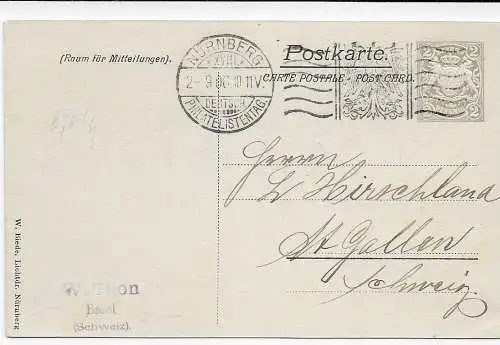 (Raum für Mitteilungen).
NÜRNBERG
XVIII.
2-9 06 10-11V.
DEUTSCH.
PHILATELISTENTAG.
Postkarte.
CARTE POSTALE - POST CARD.
2 2
2
Herrn
L Hirschland
St Gallen
Schweiz.
W. Biede, Lichtdr. Nürnberg
W. Thon
Basel
(Schweiz).